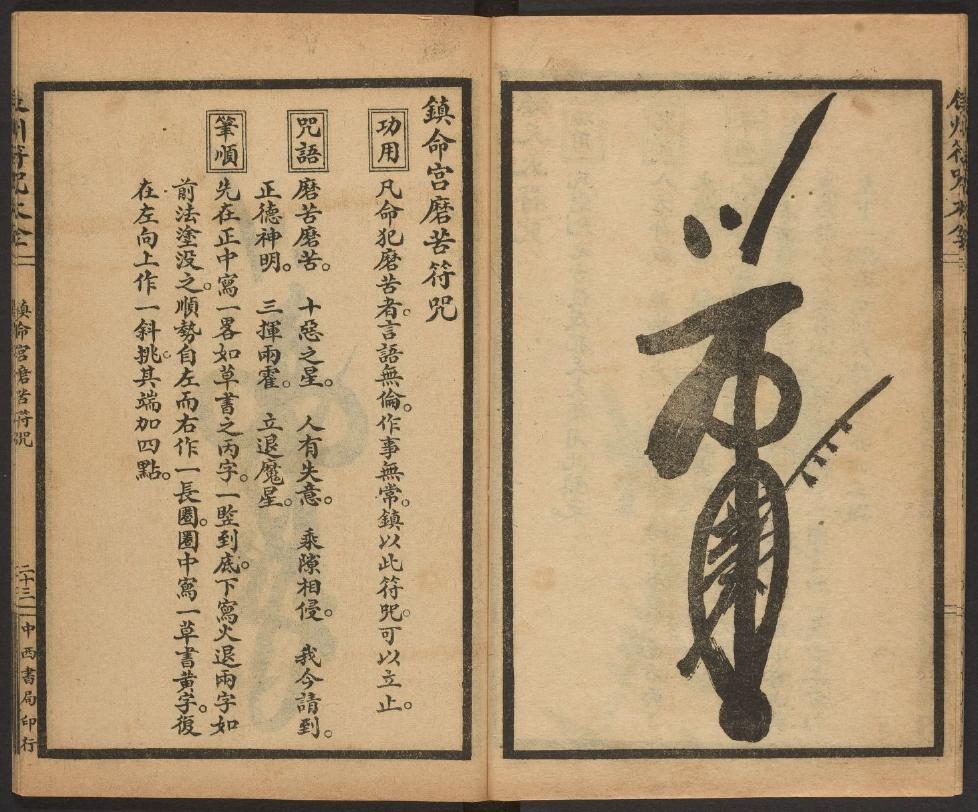 鎮命宮磨苦符咒
功用
凡命犯磨苦者。言語無倫。作事無常。鎮以此符咒。可以立止。
咒語
磨苦磨苦。 十惡之星。 人有失意。 乘隙相侵。 我今請到。
正德神明。 三揮兩霍。 立退魔星。
筆順
先在正中寫一畧如草書之丙字。一竪到底。下寫火退兩字如
前法塗没之。順勢自左而右作一長圈。圈中寫一草書黄字。復
在左向上作一斜挑。其端加四點。
州符咒大全
鎮命宮磨苦符咒
二十三
中西書局印行